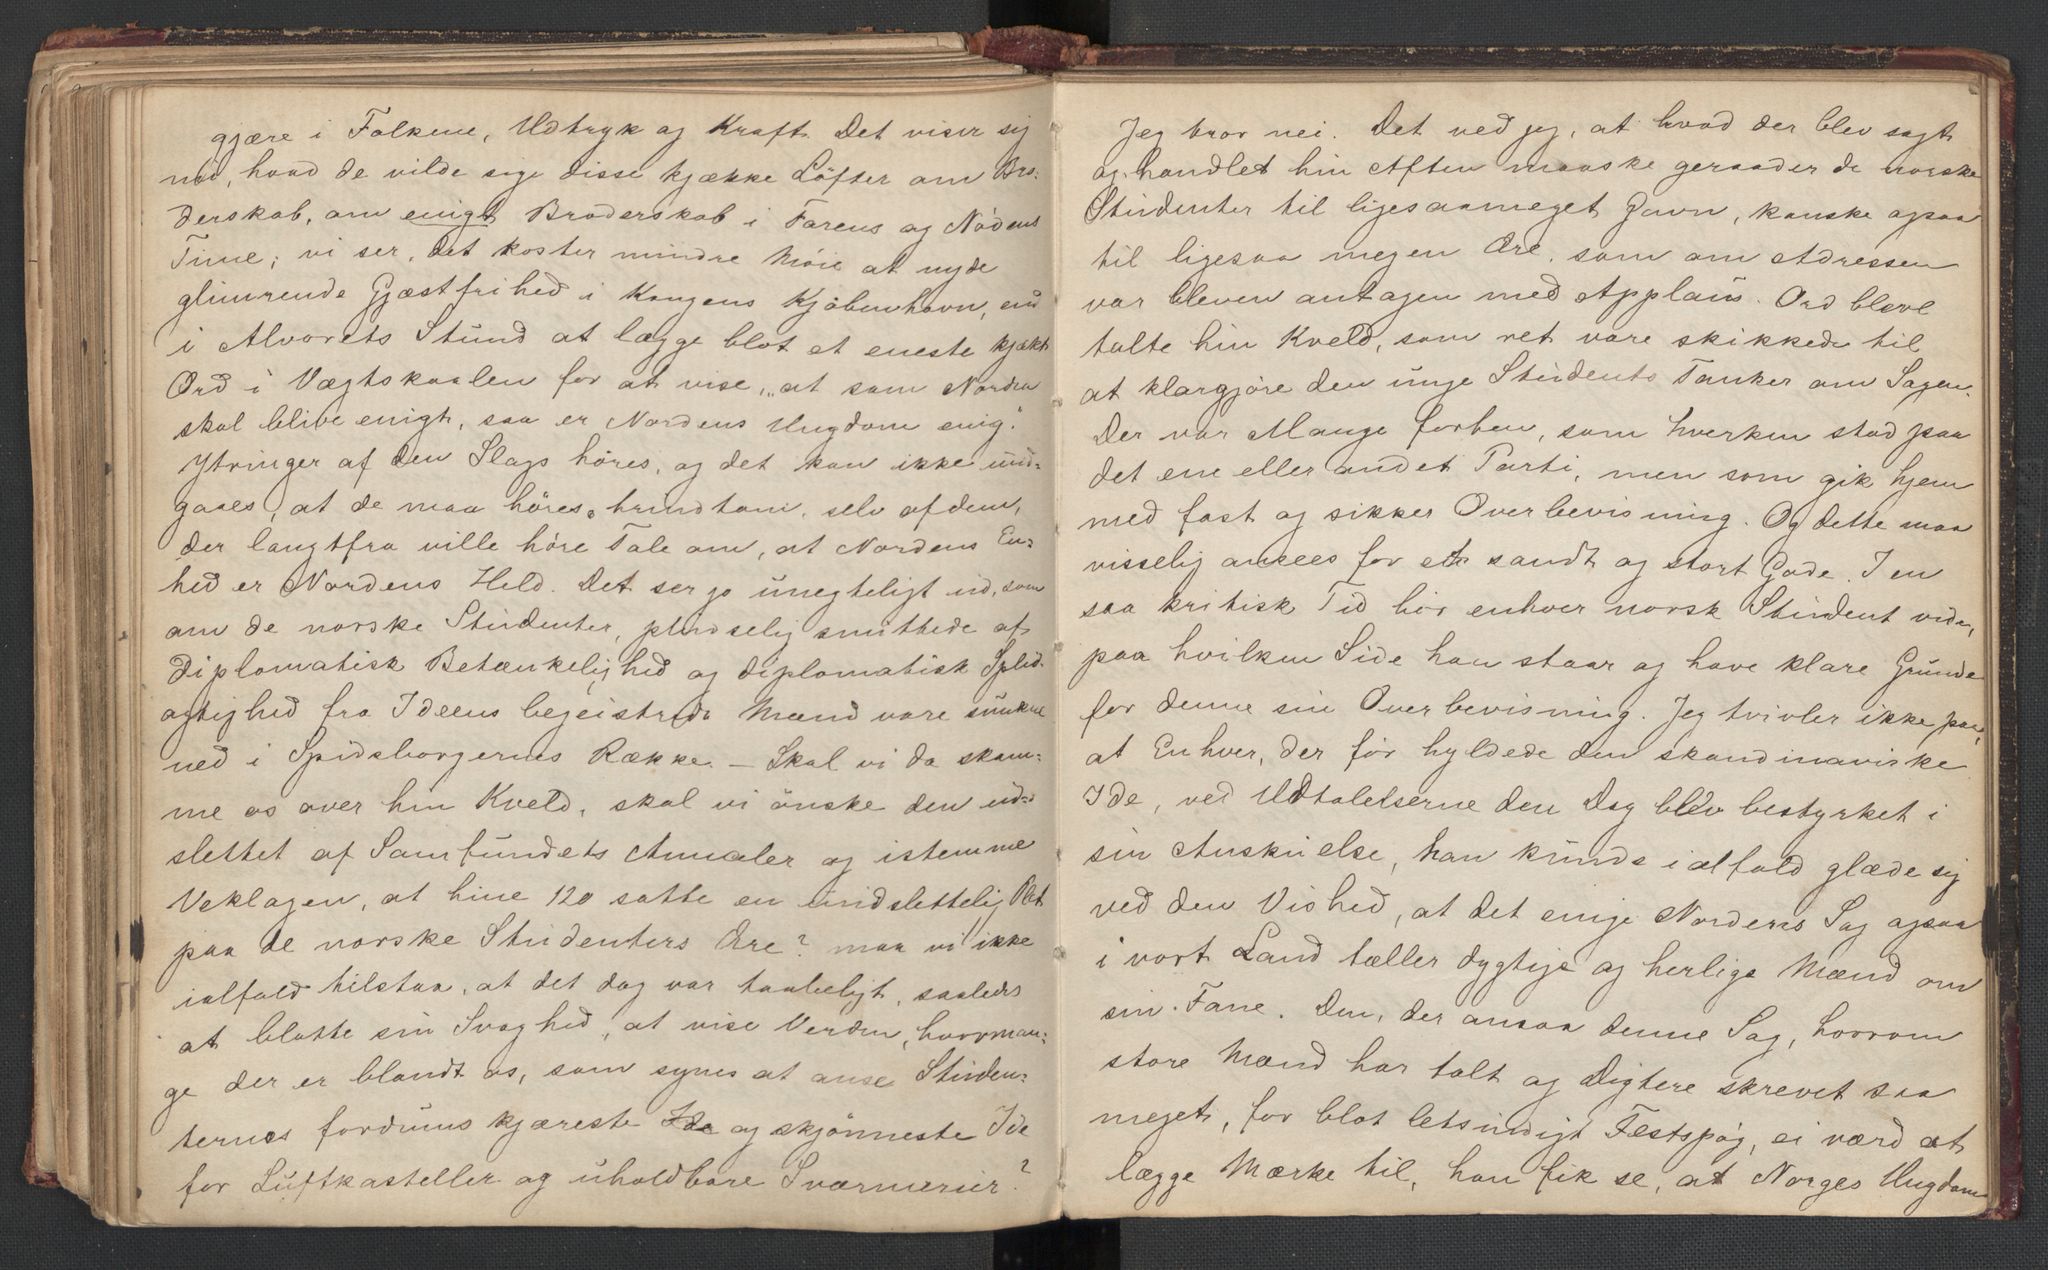 gjære i Folkene, Udtryk og Kraft. Det viser sig
nu, hvad de vilde sige disse kjække Löfter om Bro-
derskab, om enigt Broderskab i Farens og Nödens
Time; vi ser, det koster mindre Möie at nyde
glimrende Gjæstfrihed i Kongens Kjöbenhavn, end
i Alvorets Stund at lægge blot et eneste kjækt
Ord i Vægtskaalen for at vise, "at som Norden
skal blive enigt, saa er Nordens Ungdom enig."
Ytringer af den Slags höres, og det kan ikke und-
gaaes, at de maa höres trindtom, selv af dem,
der langtfra ville höre Tale om, at Nordens En-
hed er Nordens Held. Det ser jo unegteligt ud, som
om de norske Studenter, pludselig smittede af
diplomatisk Betænkelighed og diplomatisk Splid-
agtighed fra Ideens begeistrede Mænd vare sunkne
ned i Spidsborgernes Række. – Skal vi da skam-
me os over hin Kveld, skal vi önske den ud-
slettet af Samfundets Annaler og istemme
Veklagen, at hine 120 satte en uudslettelig Plet
paa de norske Studenters Ære? maa vi ikke
ialfald tilstaa, at det dog var taabeligt, saaledes
at blotte sin Svaghed, at vise Verden, hvorman-
ge der er blandt os, som synes at anse Studen-
ternes fordums kjæreste Ide og skjönneste Ide
for Luftkasteller og uholdbare Sværmerier?
Jeg tror nei. Det ved jeg, at hvad der blev sagt
og handlet hin Aften maaske geraader de norske
Studenter til ligesaameget Gavn, kanske ogsaa
til ligesaa megen Ære, som om Adressen
var bleven antagen med Applaus. Ord bleve
talte hin Kveld, som ret vare skikkede til
at klargjöre den unge Students Tanker om Sagen.
Der var Mange forhen, som hverken stod paa
det ene eller andet Parti, men som gik hjem
med fast og sikker Overbevisning. Og dette maa
visselig ansees for et sandt og stort Gode. I en
saa kritisk Tid bör enhver norsk Student vide,
paa hvilken Side han staar og have klare Grunde
for denne sin Overbevisning. Jeg tvivler ikke paa,
at Enhver, der för hyldede den skandinaviske
Ide, ved Udtalelserne den Dag blev bestyrket i
sin Anskuelse, han kunde ialfald glæde sig
ved den Vished, at det enige Nordens Sag ogsaa
i vort Land tæller dygtige og herlige Mænd om
sin Fane. Den, der ansaa denne Sag, hvorom
store Mænd har talt og Digtere skrevet saa
meget, for blot letsindigt Festspög, ei værd at
lægge Mærke til, han fik se, at Norges Ungdom